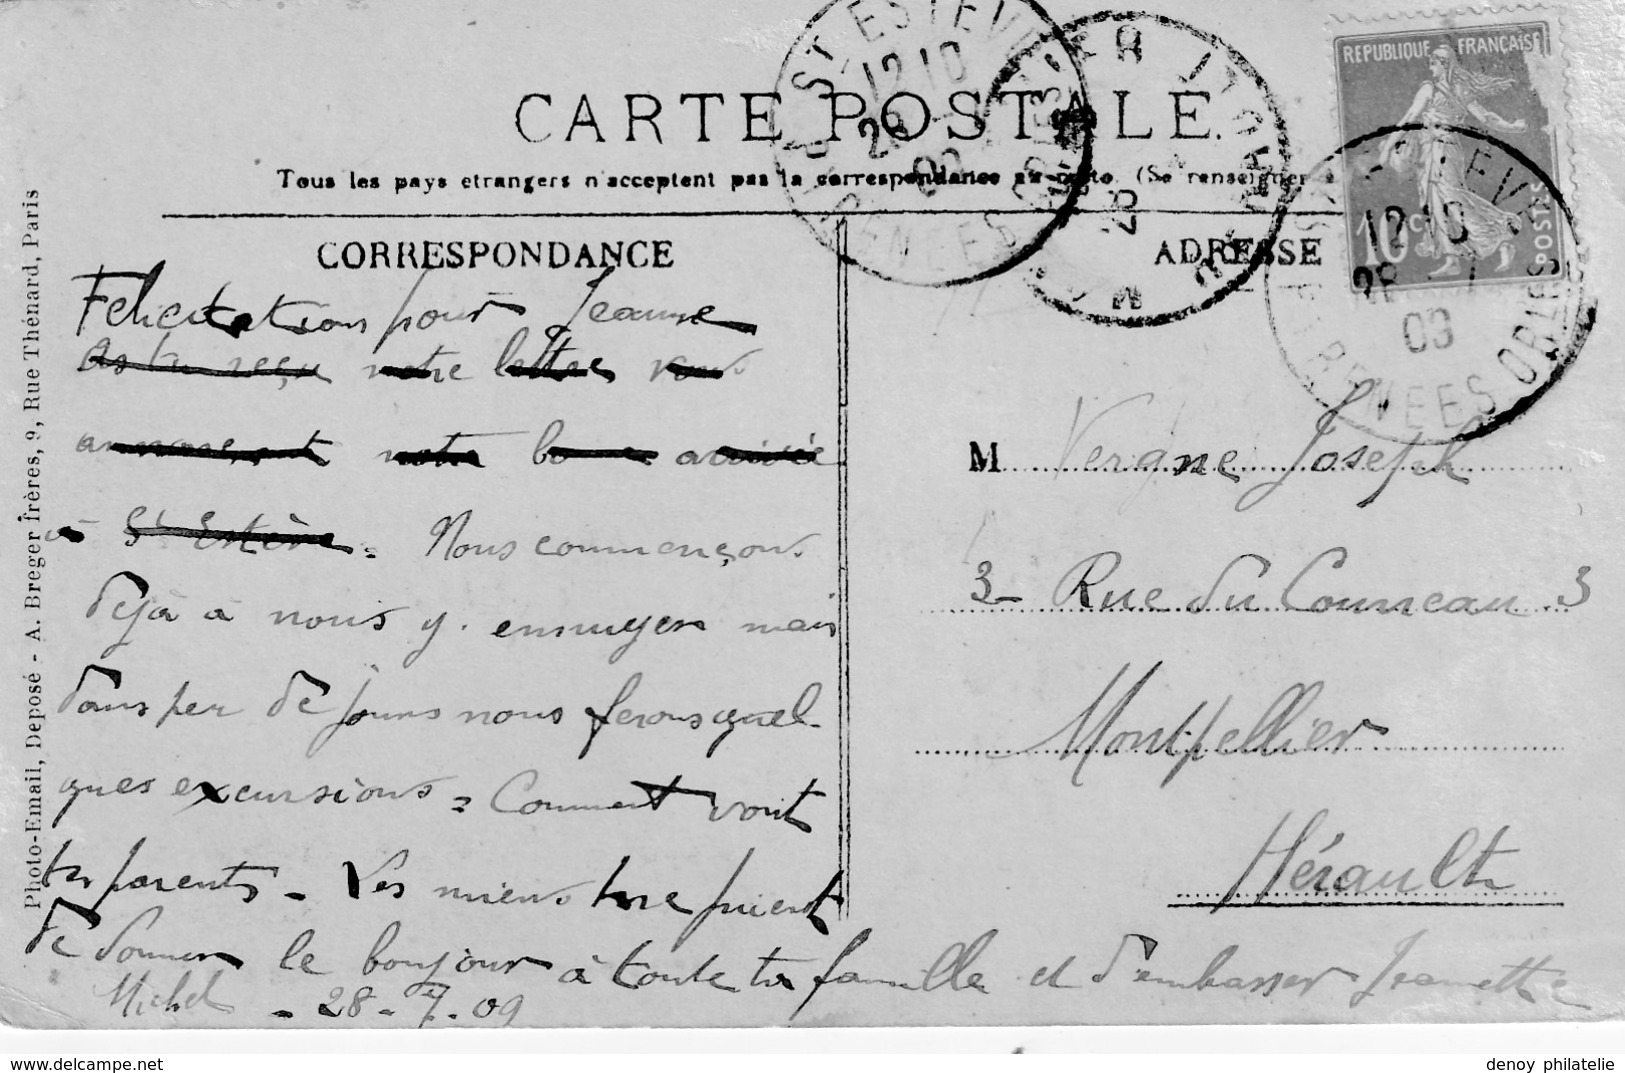 CARTE POSTALE
Tous les pays etrangers n'acceptent pas la correspondance au recto. (Se renseigner à
CORRESPONDANCE
Felicitation pour Jeanne
As tu reçu notre lettre vous
annonçant notre bonne arrivée
à St Estève. Nous commençons
déjà à nous y. ennuyer mais
dans peu de jours nous ferons quel-
ques excursions = Comment vont
tes parents - Les miens me prient
de donner le bonjour à toute ta famille et d'embasser Jeannette
Michel - 28-7-09
ADRESSE
M Vergne Joseph
3- Rue du Courreau 3
Montpellier
Hérault
REPUBLIQUE FRANÇAISE
10c POSTES
ST ESTEVE
12 10
28 - 7
09
PYRENEES ORLES
ST ESTEVE
12 10
28
09
PYRENEES ORLES
28
Photo-Email, Deposé - A. Breger frères, 9, Rue Thénard, Paris
www.delcampe.net
denoy philatelie